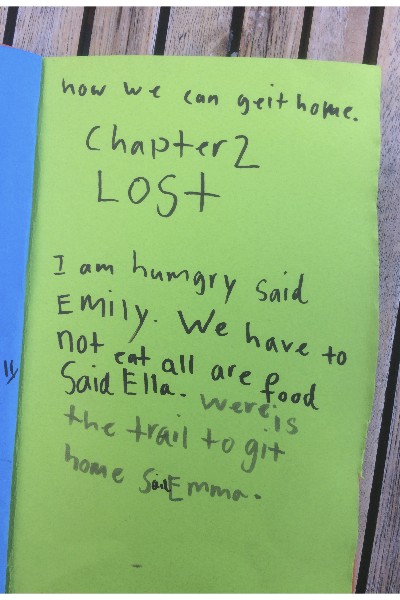 how we can geit home.
Chapter 2
LOSt
I am humgry said
Emily. We have to
not eat all are food
Said Ella. were is
the trail to git
home Said Emma.